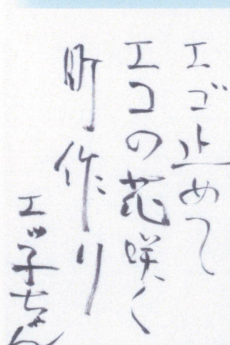 エゴ止めて
エコの花咲く
町作り
エッ子ちゃん